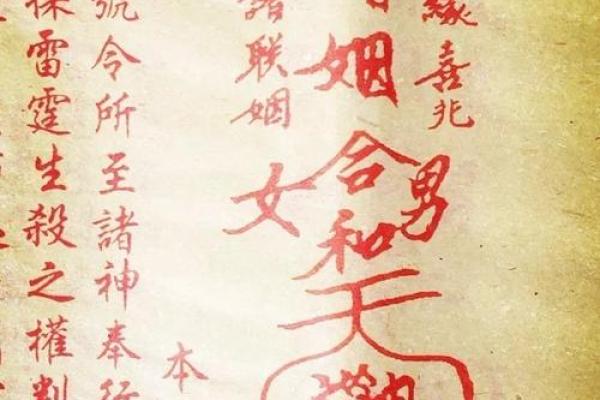 緣喜兆
男
姻合和天
女
联姻
本
號令所至諸神奉行
保雷霆生殺之權判